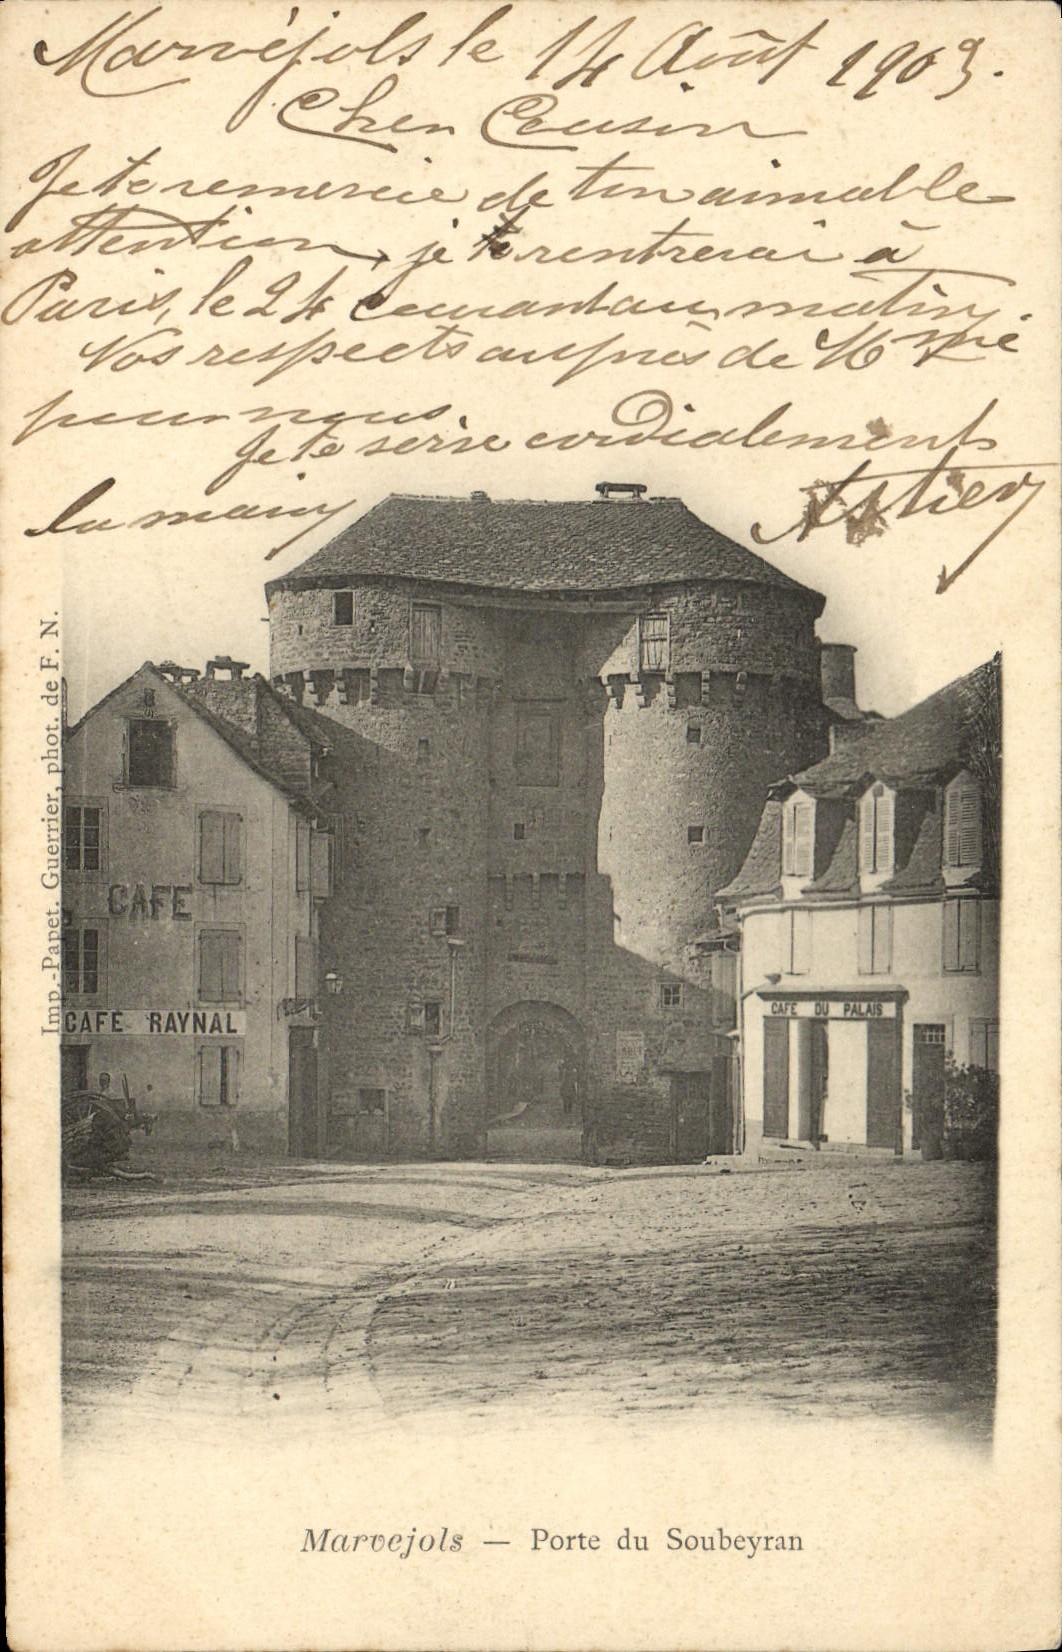 Marvéjols le 14 Août 1903.
Cher Cousin
Je te remercie de ton aimable
attention, je rentrerai à
Paris, le 24 courant au matin.
Nos respects auprès de Mme
pour nous.
Je te serre cordialement
la main
Astier
Imp.-Papet. Guerrier, phot. de F. N.
CAFE
CAFÉ RAYNAL
CAFÉ DU PALAIS
Marvejols — Porte du Soubeyran